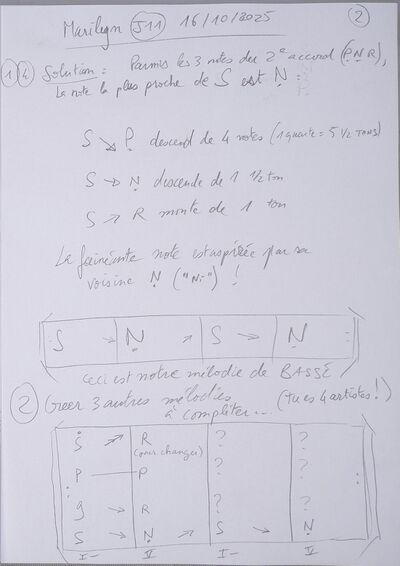 Marilyn J11 16/10/2025 2
1 4 Solution : Parmis les 3 notes du 2e accord (P N R),
La note la plus proche de S est N :
S ↘ P descend de 4 notes (1 quarte = 5 1/2 TONS)
S → N descende de 1 1/2 ton
S ↗ R monte de 1 ton
La fainéante note est aspirée par sa
voisine N ("Ni") !
S → N ↗ S → N :
Ceci est notre mélodie de BASSE
2 Créer 3 autres mélodies (tu es 4 artistes !)
à compléter...
S ↗ R ? ?
(pour changer)
P — P ? ?
g → R ? ?
S → N ↗ S → N
I- V I- V